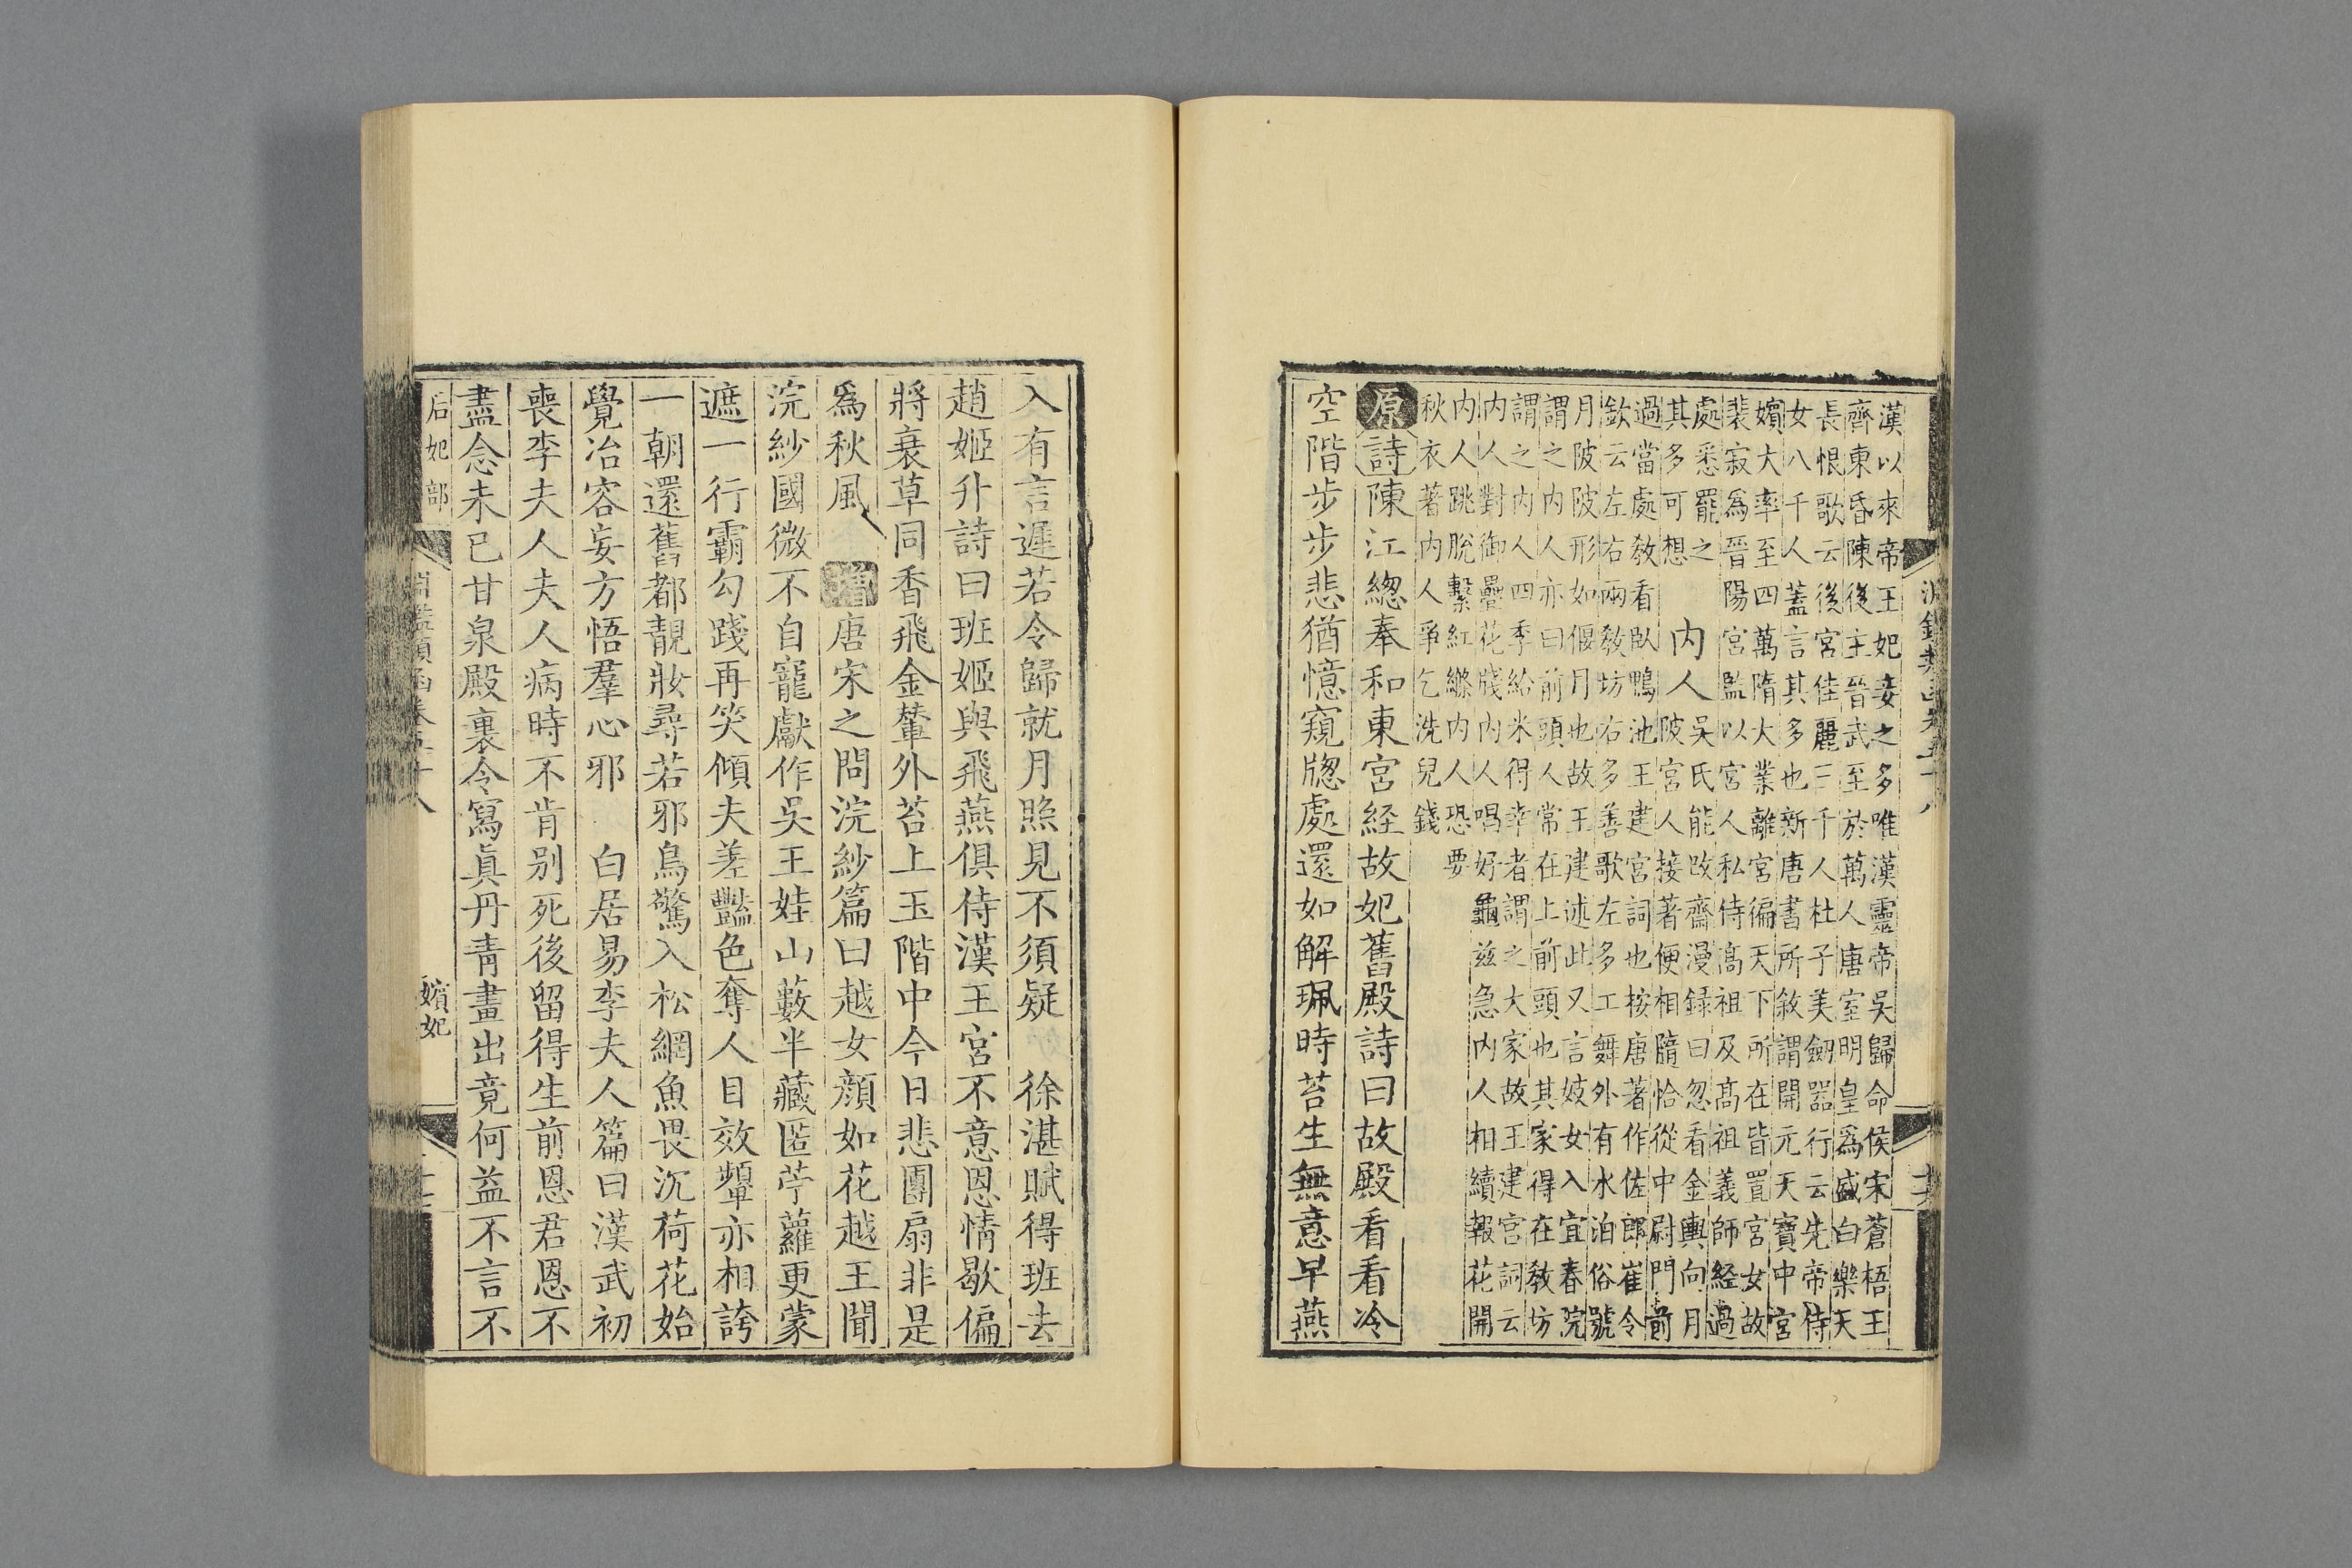 漢以來帝王妃妾之多唯漢靈帝吳歸命侯宋蒼梧王
齊東昏陳後主晉武至於萬人唐室明皇爲盛白樂天
長恨歌云後宮佳麗三千人杜子美劒器行云先帝侍
女八千人蓋言其多也新唐書所敘謂開元天寶中宮
嬪大率至四萬隋大業離宮徧天下所在皆置宮女故
裴寂爲晉陽宮監以宮人私侍髙祖及髙祖義師経過
處悉罷之
其多可想
内人
吳氏能改齋漫録曰忽看金輿向月
陂宮人接著便相隨恰從中尉門前
過當處敎看臥鴨池王建宮詞也按唐著作佐郎崔令
欽云左右兩敎坊右多善歌左多工舞外有水泊俗號
月陂陂形如偃月也故王建述此又言妓女入宜春院
謂之内人亦曰前頭人常在上前頭也其家得在敎坊
謂之内人四季給米得幸者謂之大家故王建宮詞云
内人對御疊花牋内人唱好龜兹急内人相續報花開
内人跳脫繫紅縧内人恐要
秋衣著内人爭乞洗兒錢
原詩陳江緫奉和東宮経故妃舊殿詩曰故殿看看冷
空階步步悲猶憶窺牕處還如解珮時苔生無意早燕
入有言遲若令歸就月照見不須疑 徐湛賦得班去
趙姬升詩曰班姬與飛燕俱侍漢王宮不意恩情歇偏
將衰草同香飛金輦外苔上玉階中今日悲團扇非是
爲秋風 增唐宋之問浣紗篇曰越女顏如花越王聞
浣紗國微不自寵獻作吳王娃山藪半藏匿苧蘿更蒙
遮一行霸勾踐再笑傾夫差豔色奪人目效顰亦相誇
一朝還舊都靚妝尋若邪鳥驚入松網魚畏沉荷花始
覺冶容妄方悟羣心邪 白居易李夫人篇曰漢武初
喪李夫人夫人病時不肯别死後留得生前恩君恩不
盡念未已甘泉殿裏令寫眞丹靑畫出竟何益不言不
后妃部
嬪妃